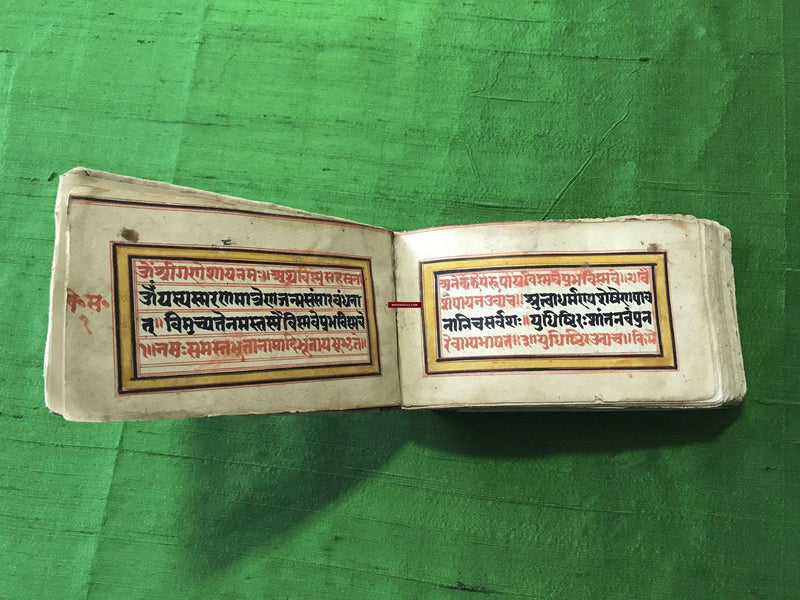 ॐश्रीगणेशायनमः॥अथविष्णुसहस्रना
ॐयस्यस्मरणमात्रेणजन्मसंसारबंधना
त्॥विमुच्यतेनमस्तस्मैविष्णवेप्रभविष्णवे
१॥नमःसमस्तभूतानामादिभूतायभूभृते॥
अनेकरुपरुपायविष्णवेप्रभविष्णवे॥
पायनउवाच॥श्रुत्वाधर्माण्यशेषेणपाव
नानिचसर्वशः॥युधिष्ठिरःशांतनवंपुन
रेवाभ्यभाषत॥युधिष्ठिरउवाच॥किमे